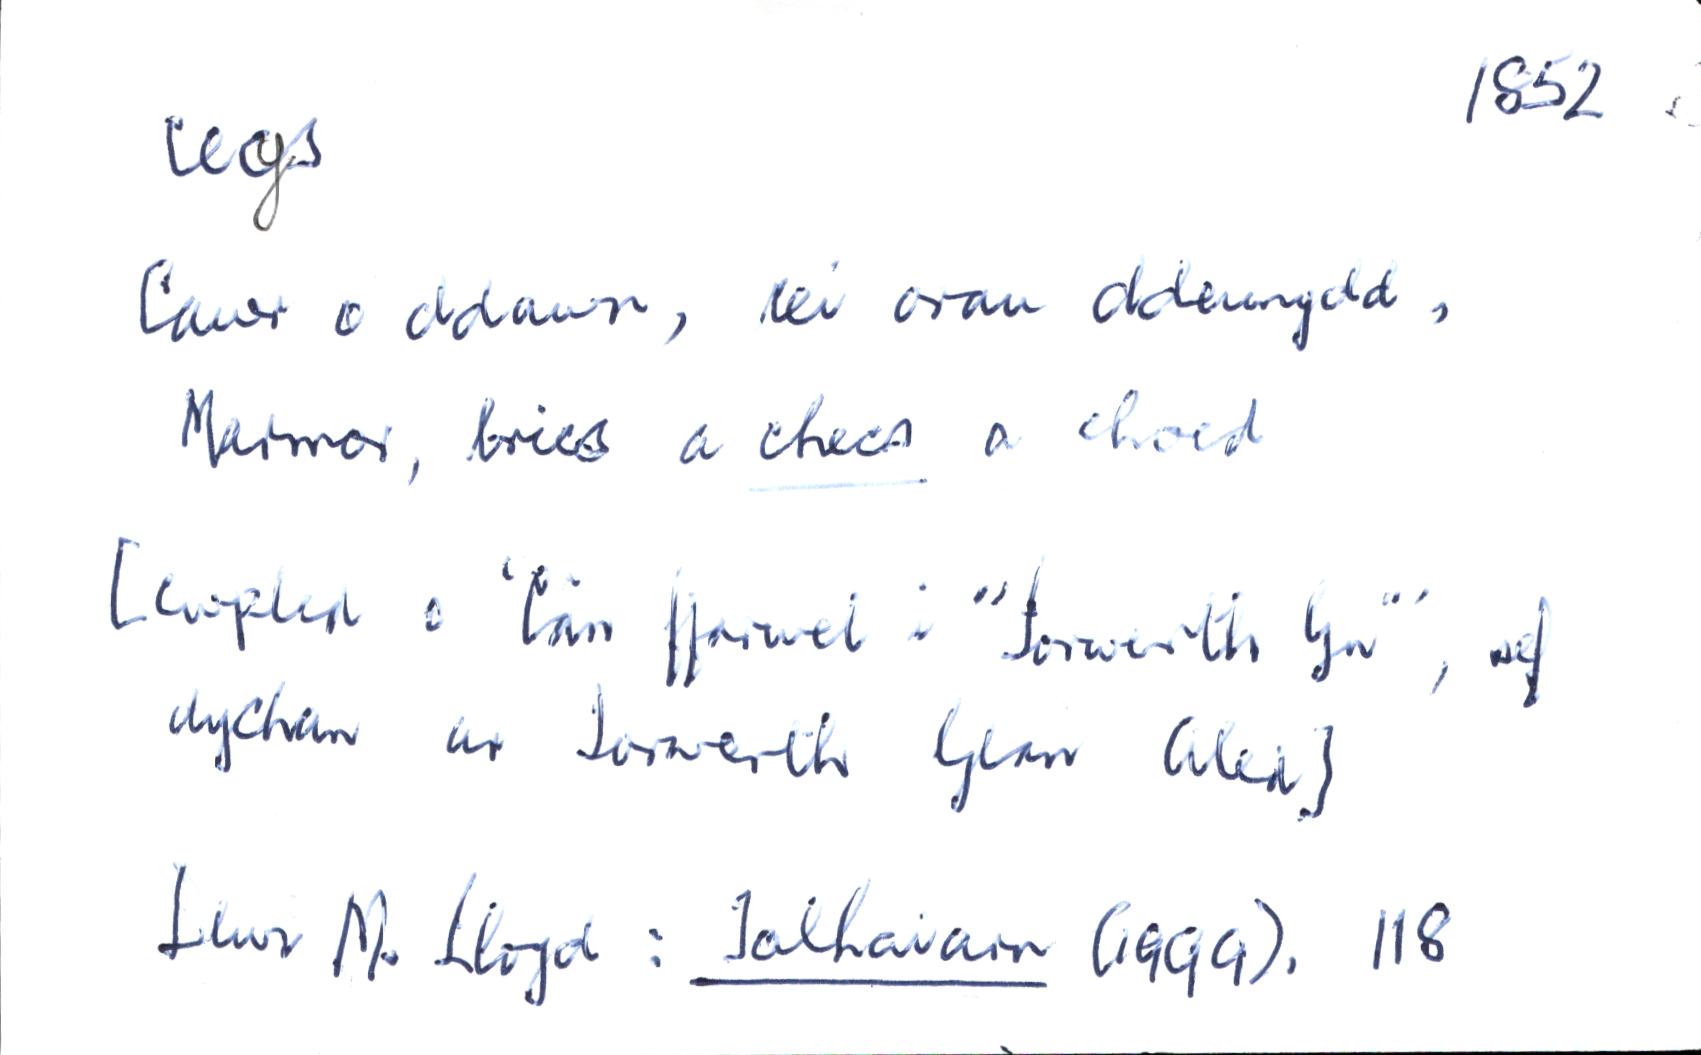 1852
cegs
Cawr o ddawn, rei oran ddeunydd,
Marmor, brics a checs a choed
[cwpled o 'Cân ffarwel i "Iorwerth Gn"', sef
dychan ar Iorwerth Glan Aled]
Lewr M. Lloyd : Talhaiarn (1999). 118